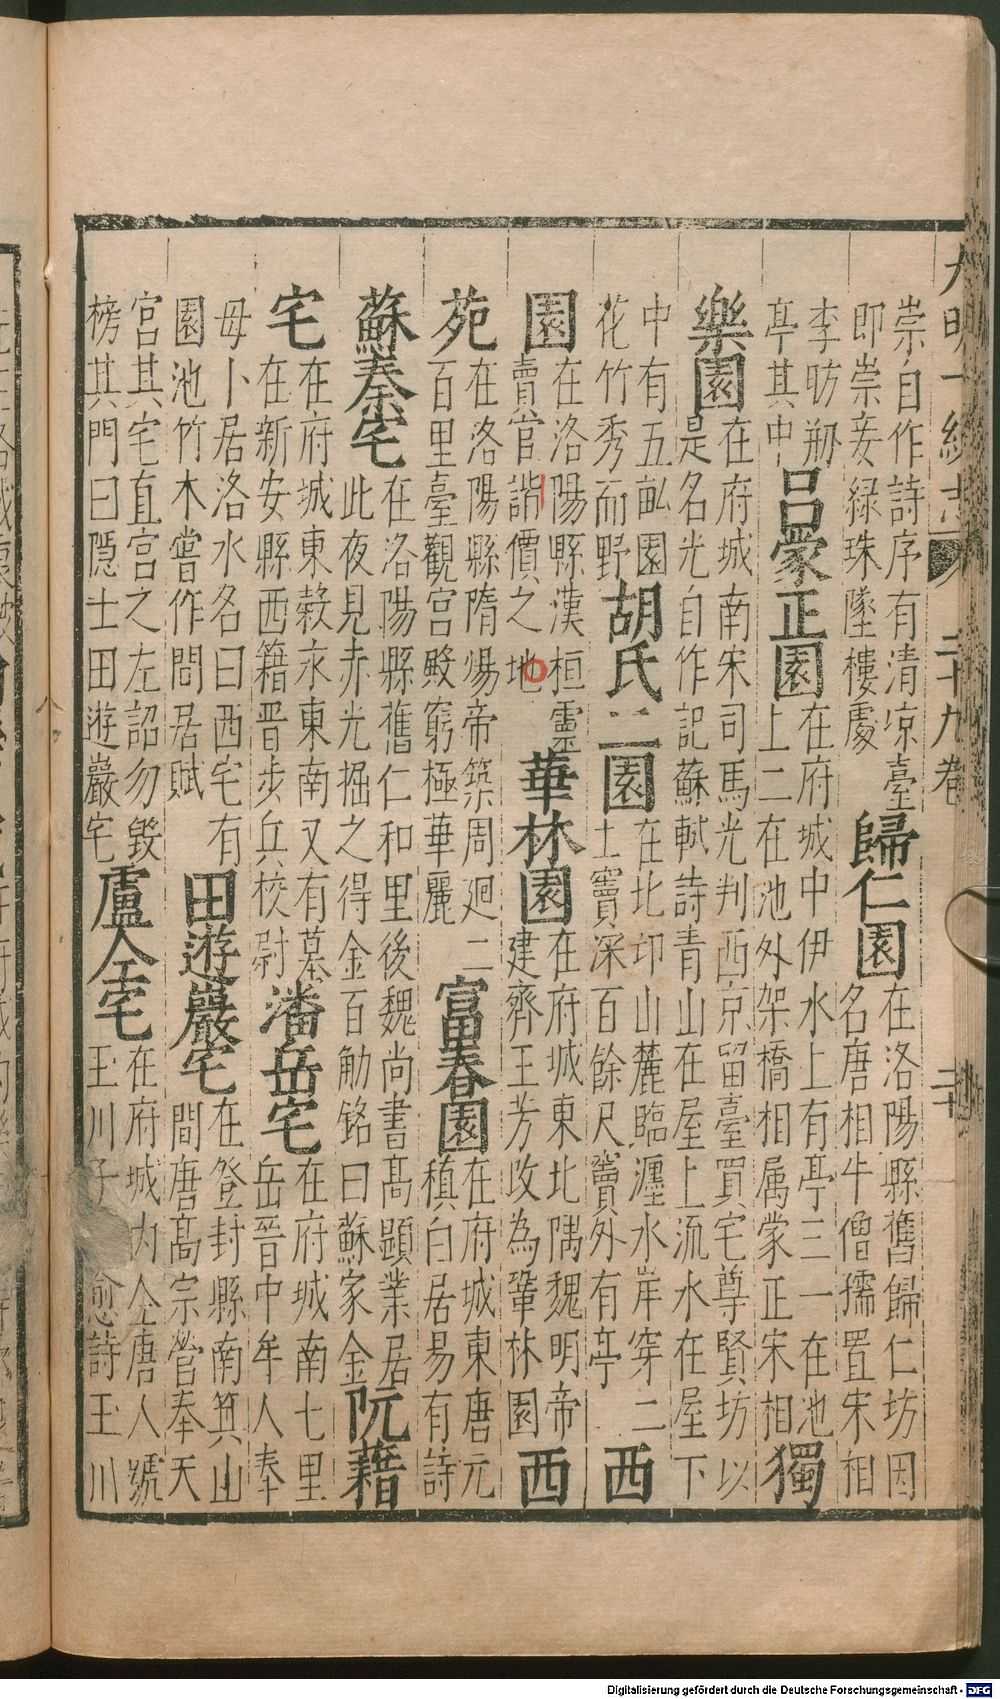 大明一統志 二十九卷 二十
崇自作詩序有清凉臺
即崇妾緑珠墜樓處
歸仁園
在洛陽縣舊歸仁坊因
名唐相牛僧孺置宋相
李昉剏
亭其中
吕蒙正園
在府城中伊水上有亭三一在池
上二在池外架橋相属蒙正宋相
獨
樂園
在府城南宋司馬光判西京留臺買宅尊賢坊以
是名光自作記蘇軾詩青山在屋上流水在屋下
中有五畝園
花竹秀而野
胡氏二園
在北邙山麓臨瀍水岸穿二
土竇深百餘尺竇外有亭
西
園
在洛陽縣漢桓靈
賣官詣價之地
華林園
在府城東北隅魏明帝
建齊王芳改為華林園
西
苑
在洛陽縣隋煬帝築周廻二
百里臺觀宮殿窮極華麗
富春園
在府城東唐元
稹白居易有詩
蘇秦宅
在洛陽縣舊仁和里後魏尚書高顯業居
此夜見赤光掘之得金百觔铭曰蘇家金
阮藉
宅
在府城東榖水東南又有墓
在新安縣西籍晋步兵校尉
潘岳宅
在府城南七里
岳晋中牟人奉
母卜居洛水名曰西宅有
園池竹木嘗作閒居賦
田遊巖宅
在登封縣南箕山
間唐高宗營奉天
宮其宅直宮之左詔勿毀
榜其門曰隠士田遊巖宅
盧仝宅
在府城内仝唐人號
玉川子 愈詩玉川
Digitalisierung gefördert durch die Deutsche Forschungsgemeinschaft - DFG